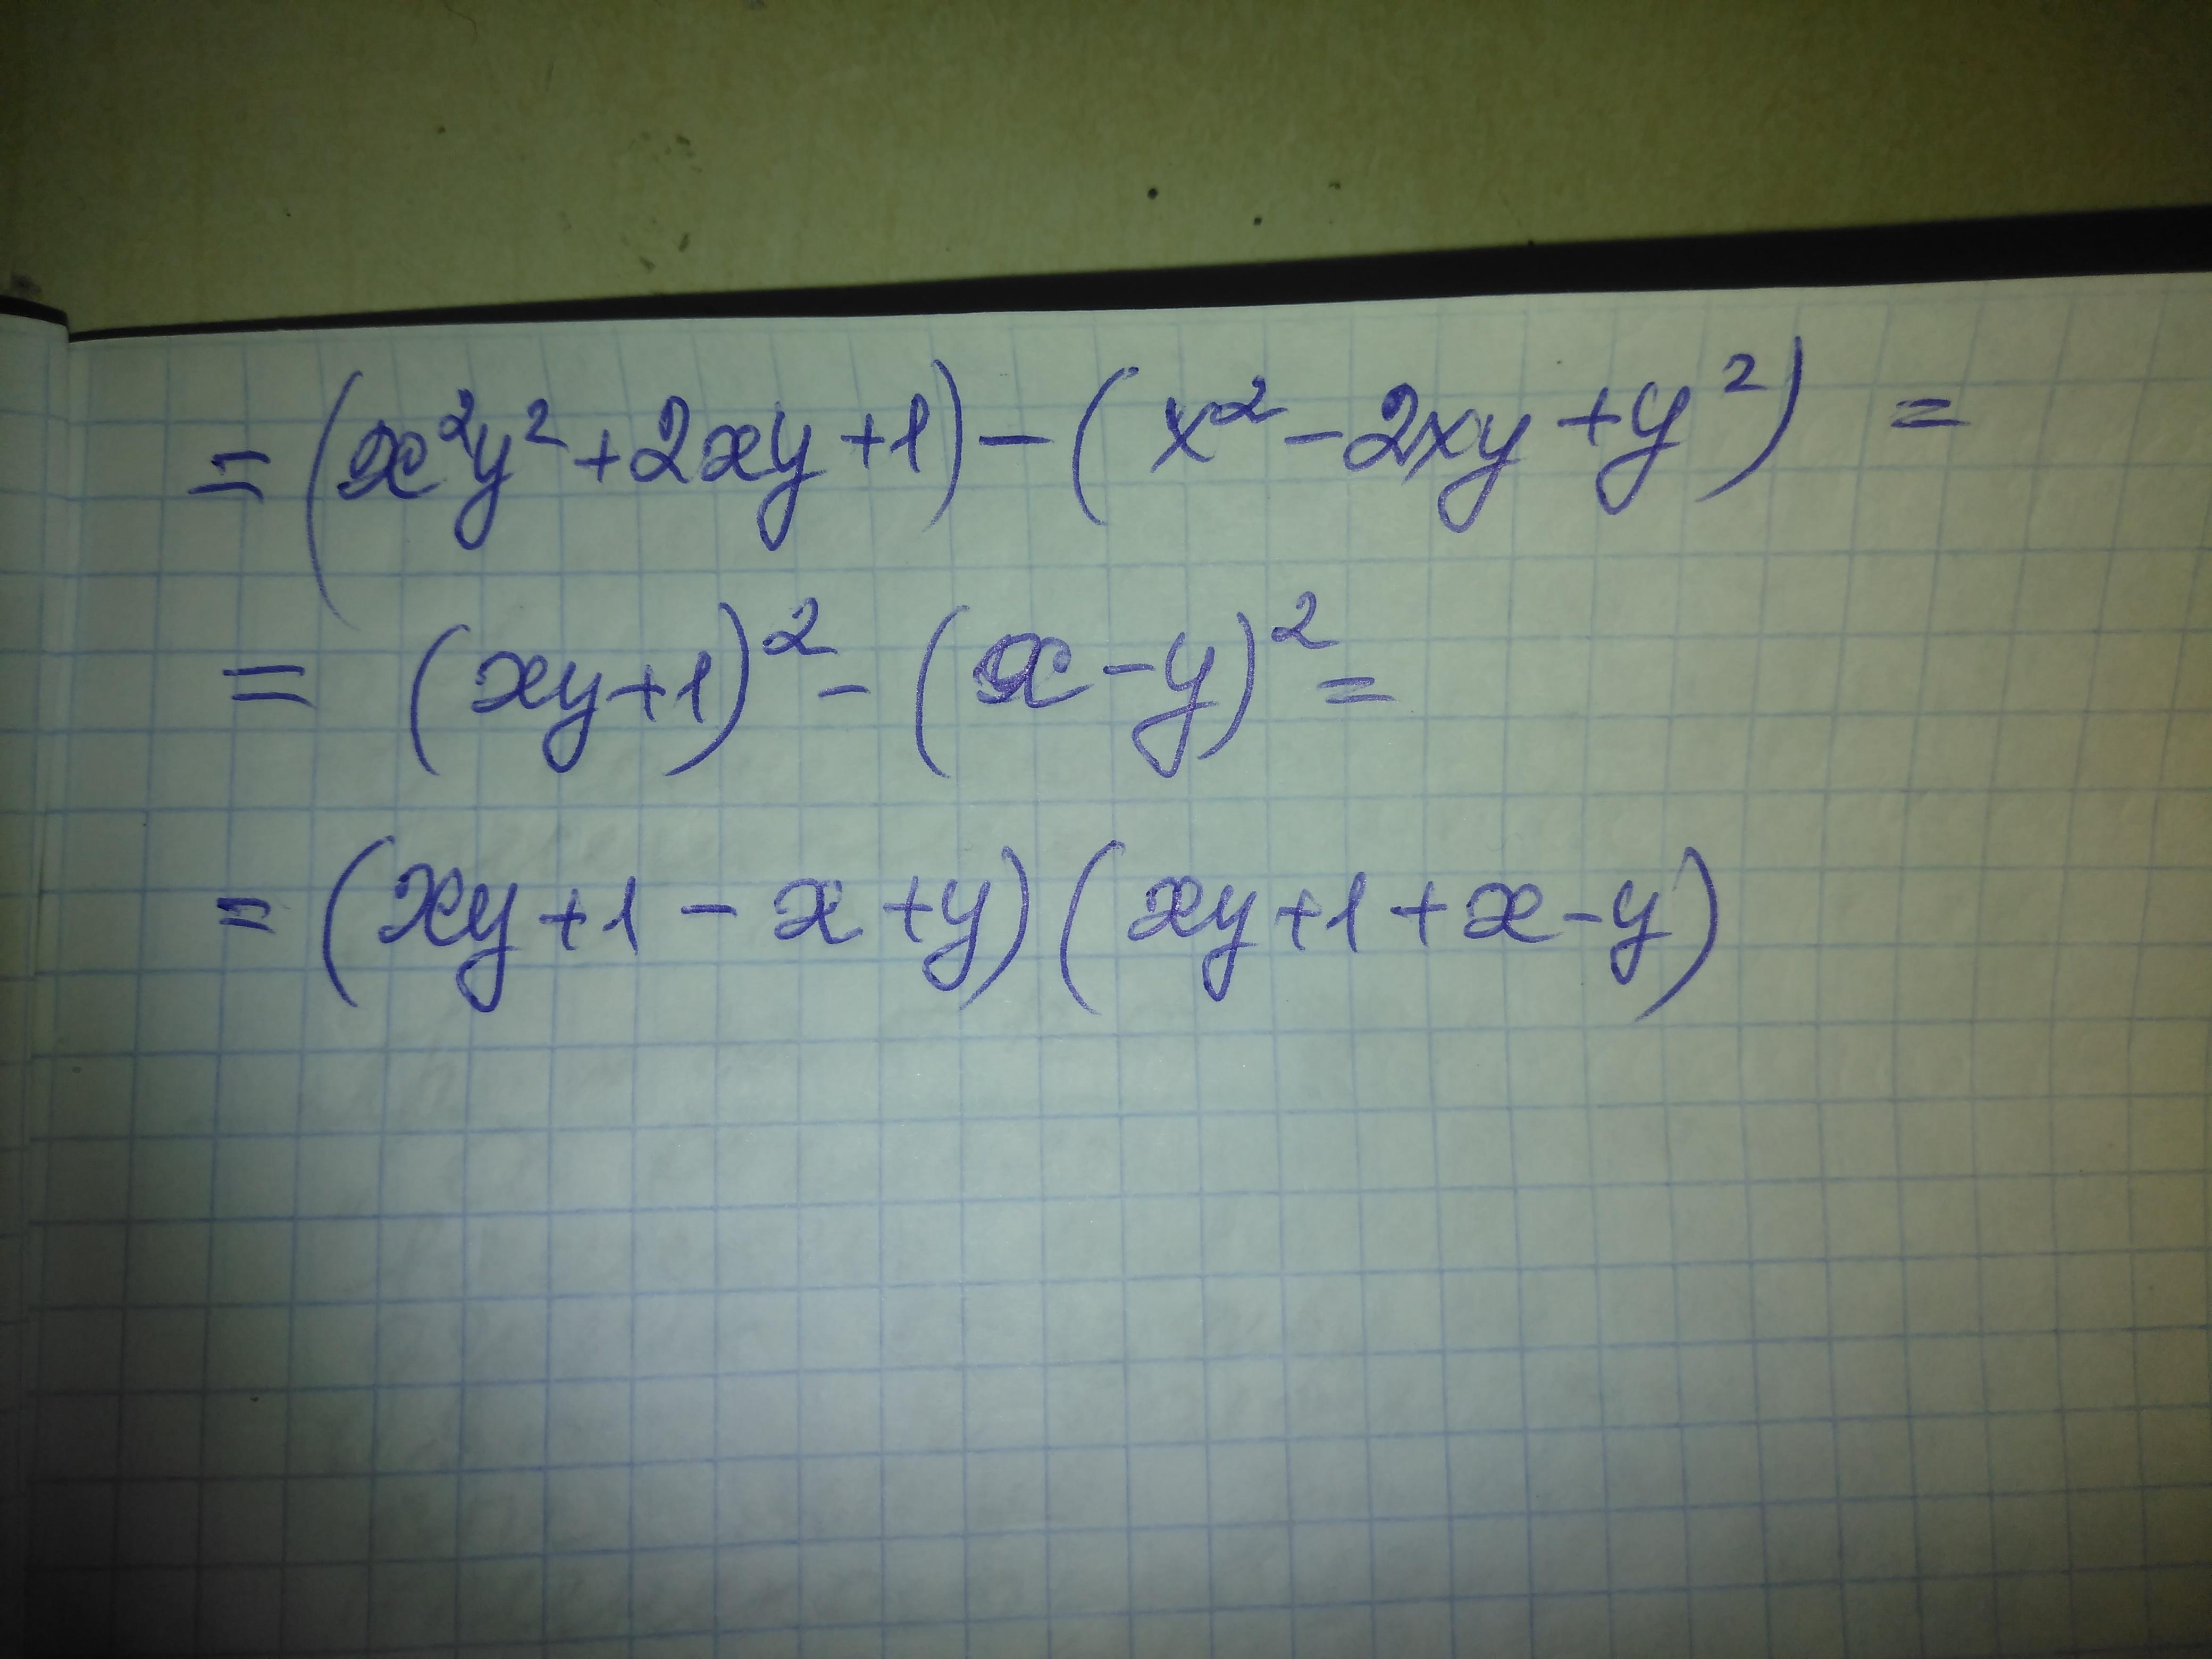 = (x²y² + 2xy + 1) - (x² - 2xy + y²) =
= (xy + 1)² - (x - y)² =
= (xy + 1 - x + y)(xy + 1 + x - y)